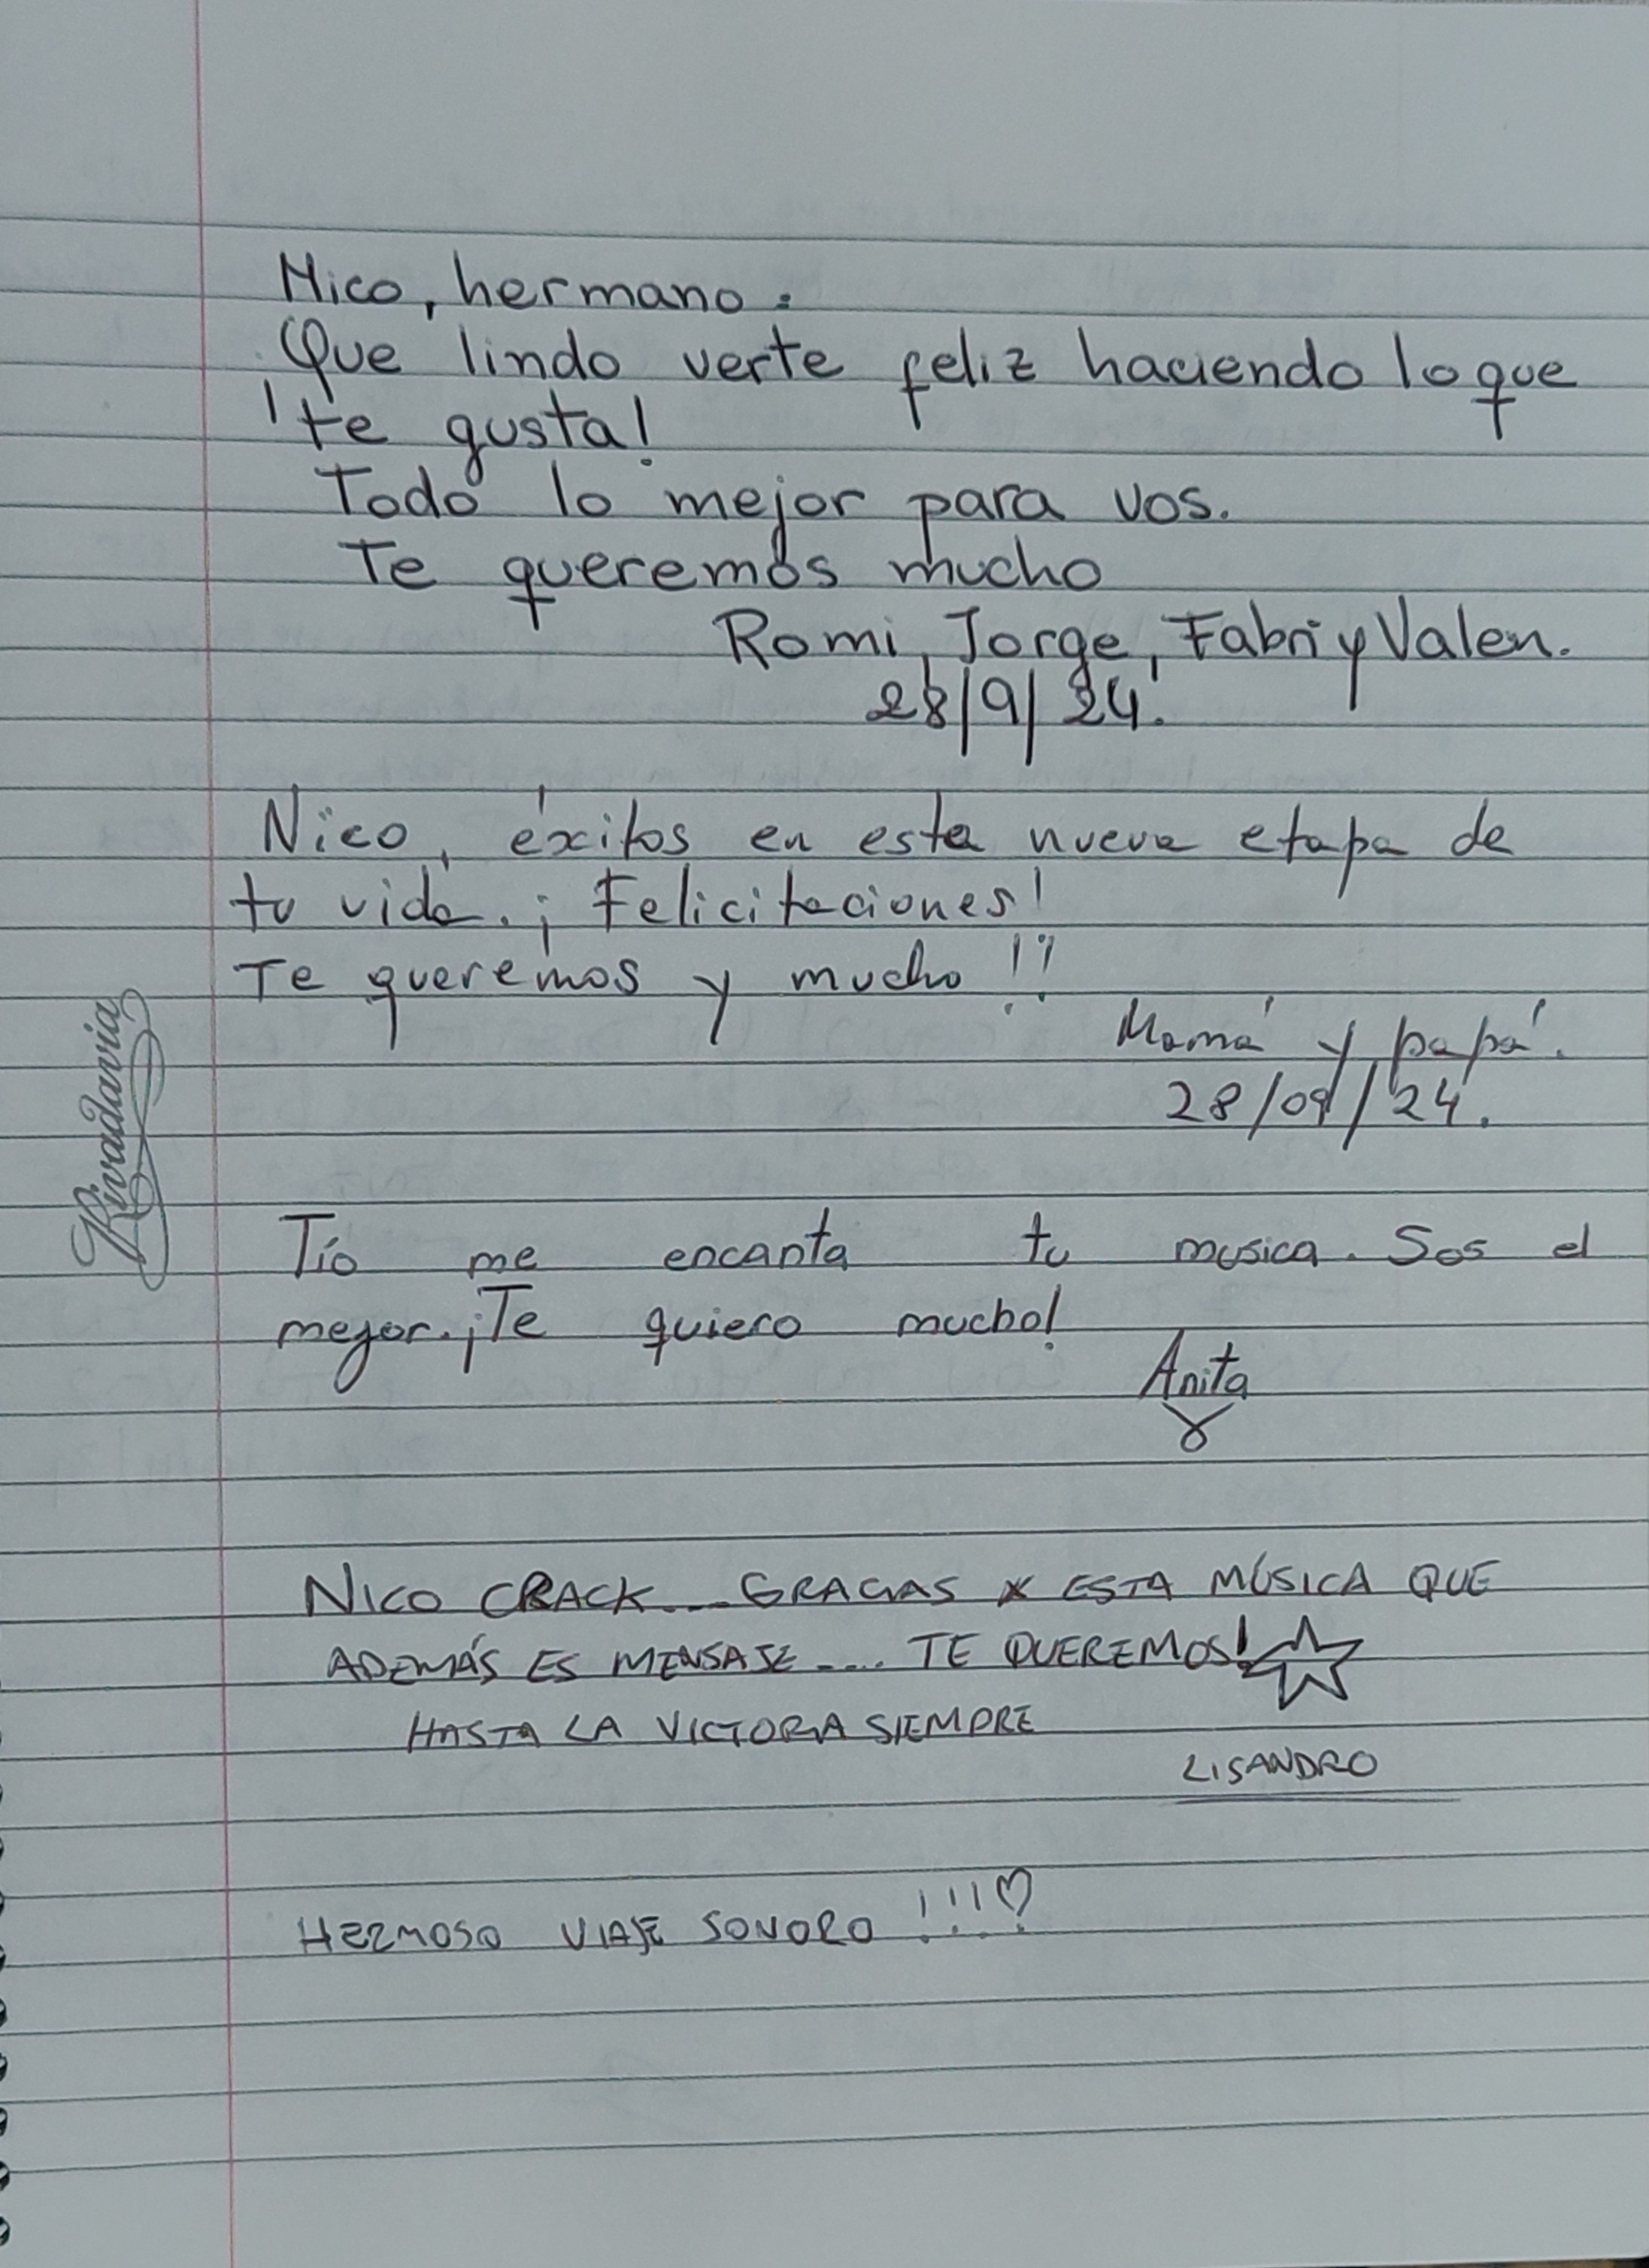 Nico, hermano:
Que lindo verte feliz haciendo lo que
¡te gusta!
Todo lo mejor para vos.
Te queremos mucho
Romi, Jorge, Fabri y Valen.
28/9/24.
Nico, éxitos en esta nueva etapa de
tu vida. ¡Felicitaciones!
Te queremos y mucho!!
Mamá y papá.
28/09/24.
Rivadavia
Tío me encanta tu musica. Sos el
mejor. ¡Te quiero mucho!
Anita
NICO CRACK... GRACIAS X ESTA MÚSICA QUE
ADEMÁS ES MENSAJE .... TE QUEREMOS!
HASTA LA VICTORIA SIEMPRE
LISANDRO
HERMOSO VIAJE SONORO !!!♡